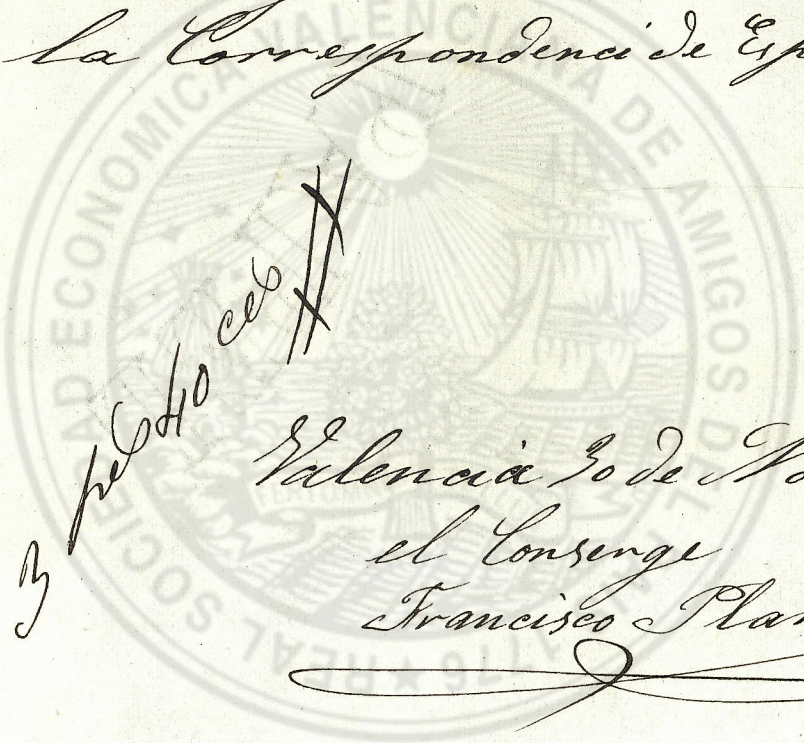 la Correspondenci de Esp
3 pes 40 ces
Valencia 30 de No
el Conserge
Francisco Plan
REAL SOCIEDAD ECONOMICA VALENCIANA DE AMIGOS DEL PAIS
1776